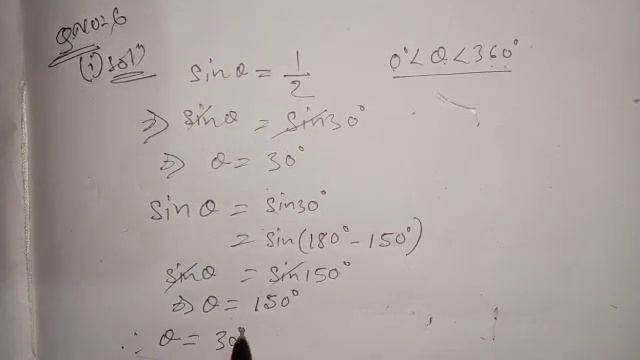 Q.No=6
(i) Solⁿ
sinθ = 1/2    0° < θ < 360°
⇒ sinθ = sin30°
⇒ θ = 30°
sinθ = sin30°
= sin(180° - 150°)
sinθ = sin150°
⇒ θ = 150°
∴ θ = 30